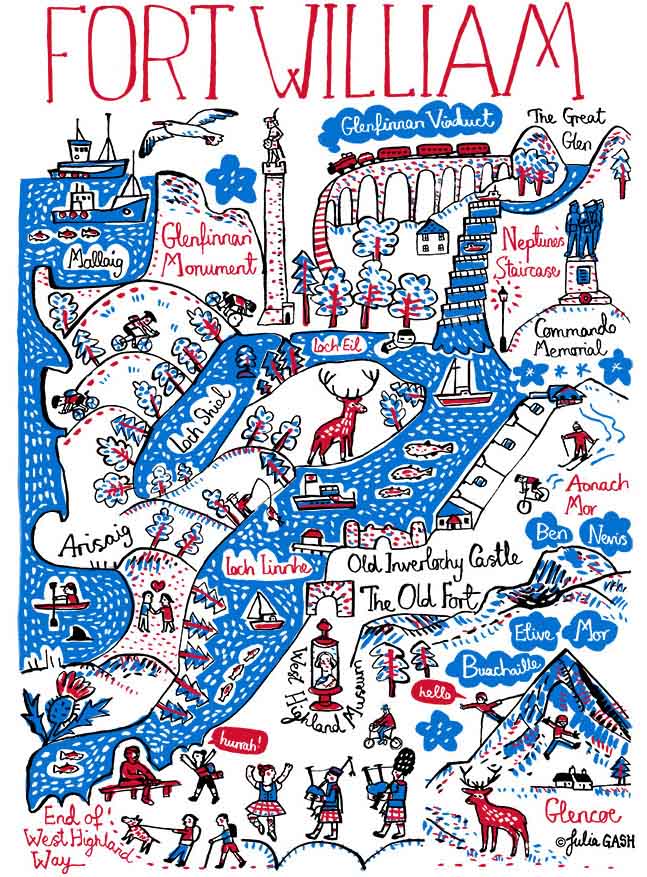 FORT WILLIAM
Glenfinnan Viaduct
The Great
Glen
Mallaig
Glenfinnan
Monument
Neptune's
Staircase
Commando
Memorial
Loch Eil
Loch Shiel
Aonach
Mor
Arisaig
Ben Nevis
Loch Linnhe
Old Inverlochy Castle
The Old Fort
Etive Mor
Buachaille
West Highland Museum
hello
hurrah!
End of
West Highland
Way
Glencoe
©Julia GASH